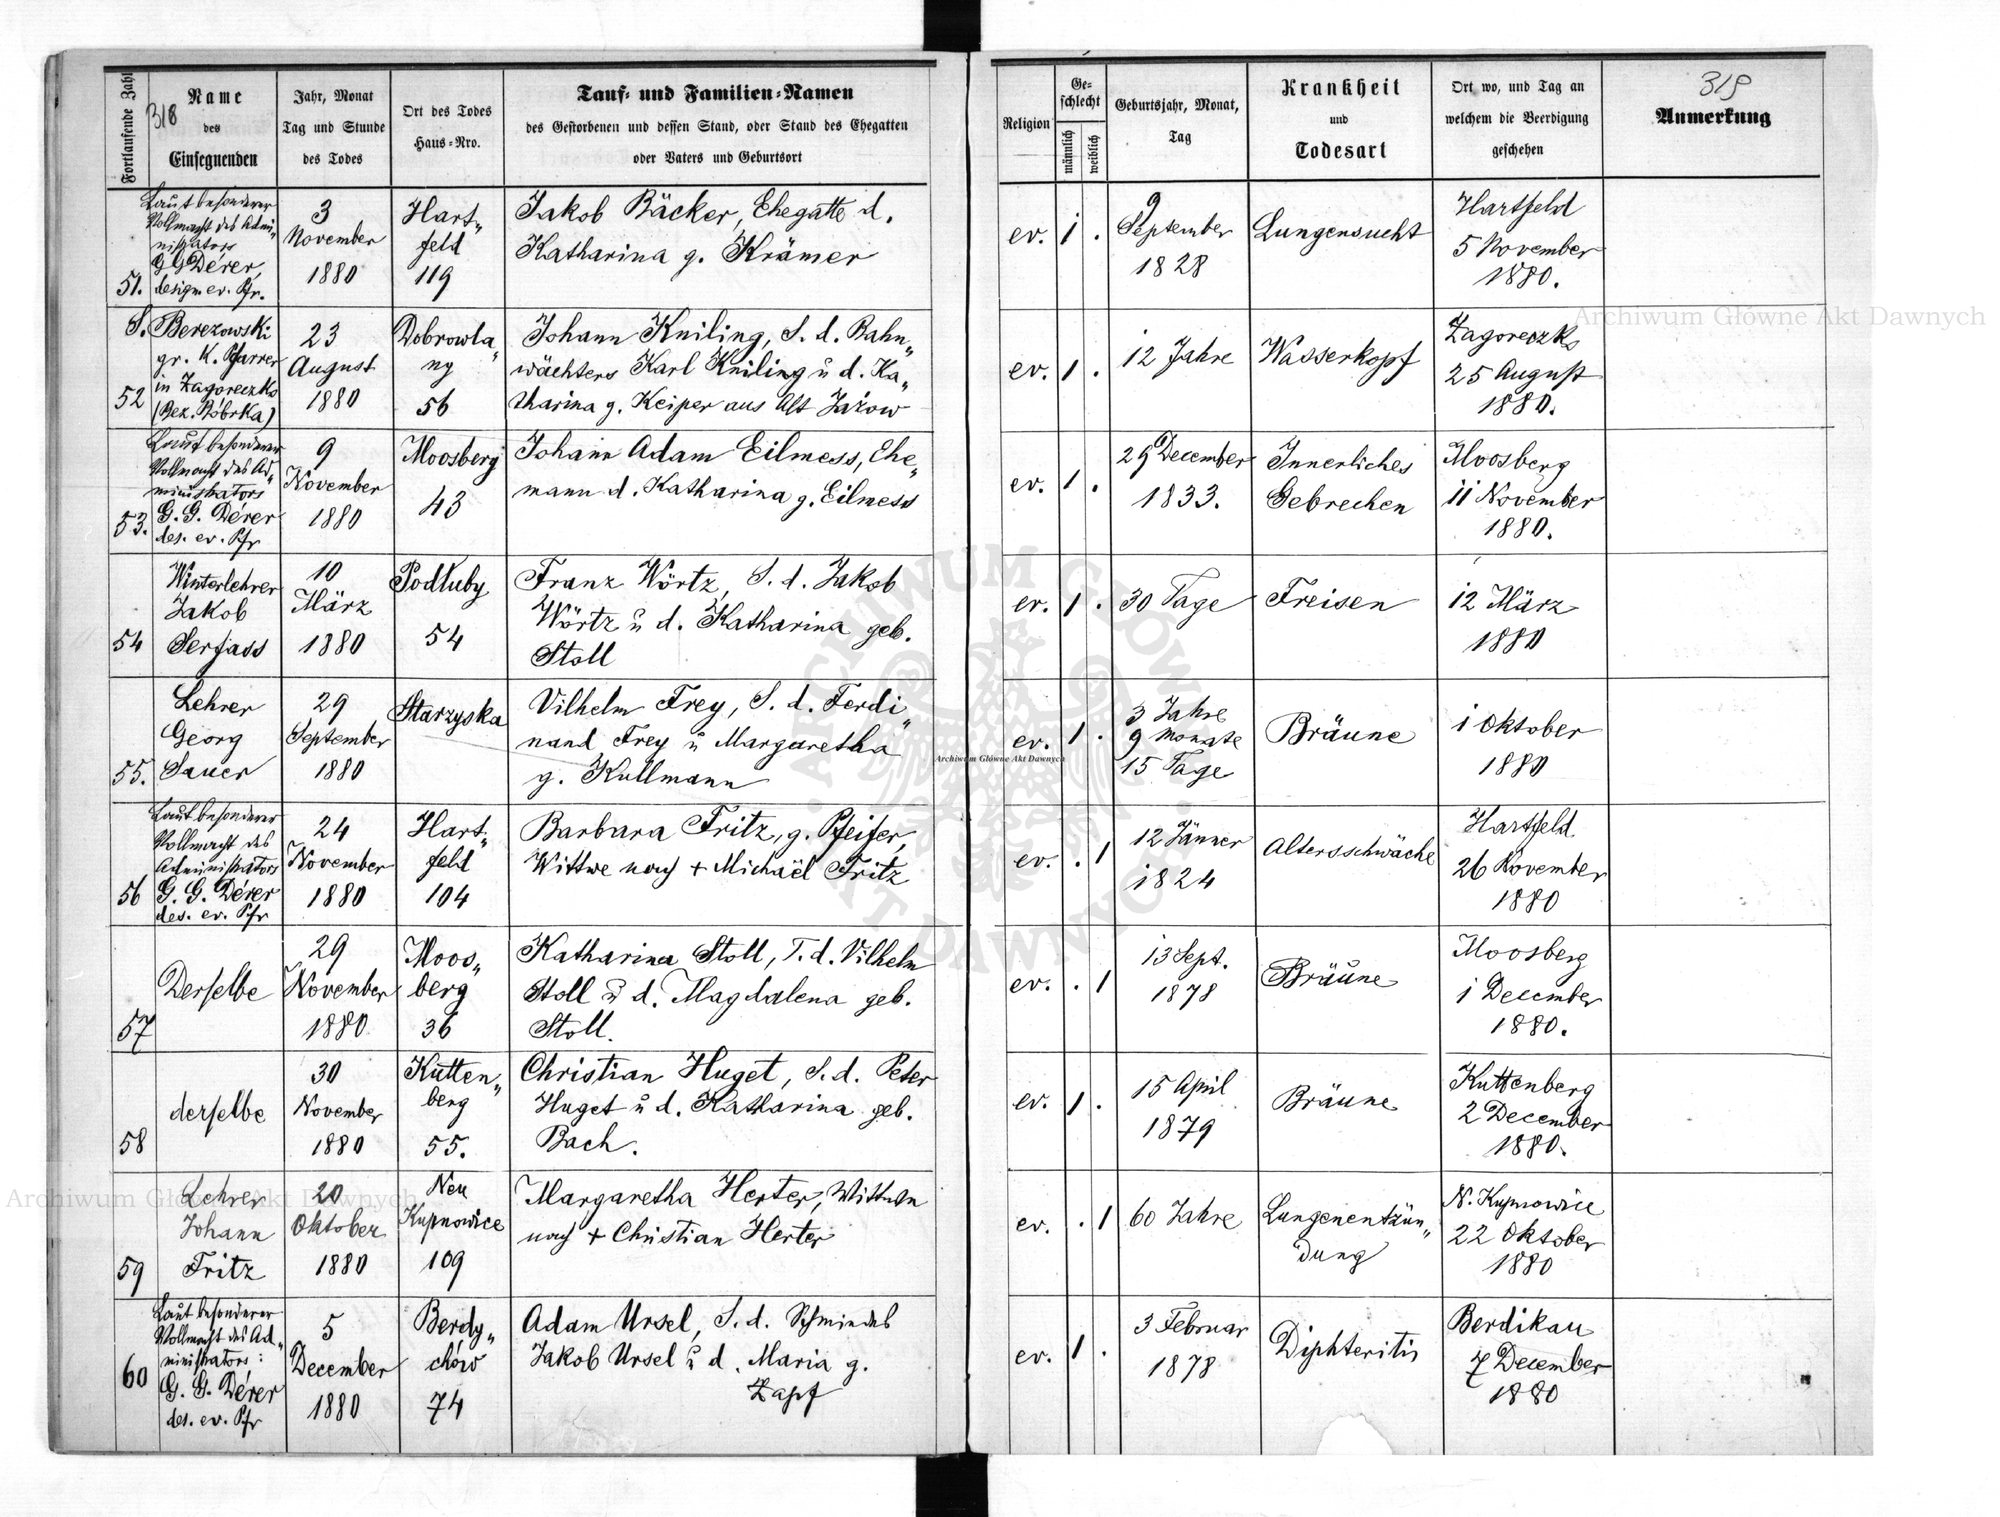 318
Fortlaufende Zahl
Name
des
Einsegnenden
Jahr, Monat
Tag und Stunde
des Todes
Ort des Todes
Haus-Nro.
Tauf- und Familien-Namen
des Gestorbenen und dessen Stand, oder Stand des Ehegatten
oder Vaters und Geburtsort
Religion
Ge-
schlecht
männlich
weiblich
Geburtsjahr, Monat,
Tag
Krankheit
und
Todesart
Ort wo, und Tag an
welchem die Beerdigung
geschehen
319
Anmerkung
51.
Laut besonderer
Vollmacht des Admi„
nistrators
G G Dérer,
design. ev. Pfr.
3
November
1880
Hart„
feld
119
Jakob Bäcker, Ehegatte d.
Katharina g. Krämer
ev. 1 .
9
September
1828
Lungensucht
Hartfeld
5 November
1880.
52
S. Berezowski
gr. K. Pfarrer
in Zagoreczko
(Bez. Bóbrka)
23
August
1880
Dobrowla„
ny
56
Johann Kniling, S. d. Bahn„
wächters Karl Kniling u d. Ka„
tharina g. Keiper aus Alt Jażow
ev. 1 .
12 Jahre
Wasserkopf
Zagoreczko
25 August
1880.
53.
Laut besonderer
Vollmacht des Ad„
ministrators
G. G. Dérer
des. ev. Pfr
9
November
1880
Moosberg
43
Johann Adam Eilmess, Ehe„
mann d. Katharina g. Eilmess
ev. 1 .
29 December
1833.
Innerliches
Gebrechen
Moosberg
11 November
1880.
54
Winterlehrer
Jakob
Serfass
10
März
1880
Podłuby
54
Franz Wörtz, S. d. Jakob
Wörtz u d. Katharina geb.
Stoll
ev. 1 .
30 Tage
Freisen
12 März
1880
55.
Lehrer
Georg
Sauer
29
September
1880
Starzyska
Vilhelm Frey, S. d. Ferdi„
nand Frey u Margaretha
g. Kullmann
ev. 1 .
3 Jahre
9 Monate
15 Tage
Bräune
1 Oktober
1880
56
Laut besonderer
Vollmacht des
Administrators
G. G. Dérer
des. ev. Pfr
24
November
1880
Hart„
feld
104
Barbara Fritz, g. Pfeifer,
Wittwe nach + Michaël Fritz
ev. . 1
12 Jänner
1824
Altersschwäche
Hartfeld
26 November
1880
57
Derselbe
29
November
1880
Moos„
berg
36
Katharina Stoll, T. d. Vilhelm
Stoll u d. Magdalena geb.
Stoll.
ev. . 1
13 Sept.
1878
Bräune
Moosberg
1 December
1880.
58
derselbe
30
November
1880
Kutten„
berg
55.
Christian Huget, S. d. Peter
Huget u d. Katharina geb.
Bach.
ev. 1 .
15 April
1879
Bräune
Kuttenberg
2 December
1880.
59
Lehrer
Johann
Fritz
20
Oktober
1880
Neu
Kupnowice
109
Margaretha Herter, Wittwe
nach + Christian Herter
ev. . 1
60 Jahre
Lungenentzün„
dung
N. Kupnowice
22 Oktober
1880
60
Laut besonderer
Vollmacht des Ad„
ministrators:
G. G. Dérer
des. ev. Pfr
5
December
1880
Berdy„
chów
74
Adam Ursel, S. d. Schmiedes
Jakob Ursel u d. Maria g.
Zapf
ev. 1 .
3 Februar
1878
Diphteritis
Berdikau
7 December
1880
Archiwum Główne Akt Dawnych
Archiwum Główne Akt Dawnych
Archiwum Główne Akt Dawnych
ARCHIWUM GŁÓWNE AKT DAWNYCH